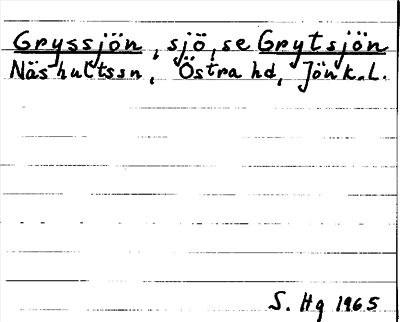 Gryssjön, sjö, se Grytsjön
Näshultssn, Östra hd, Jönk.L.
S. Hg 1965